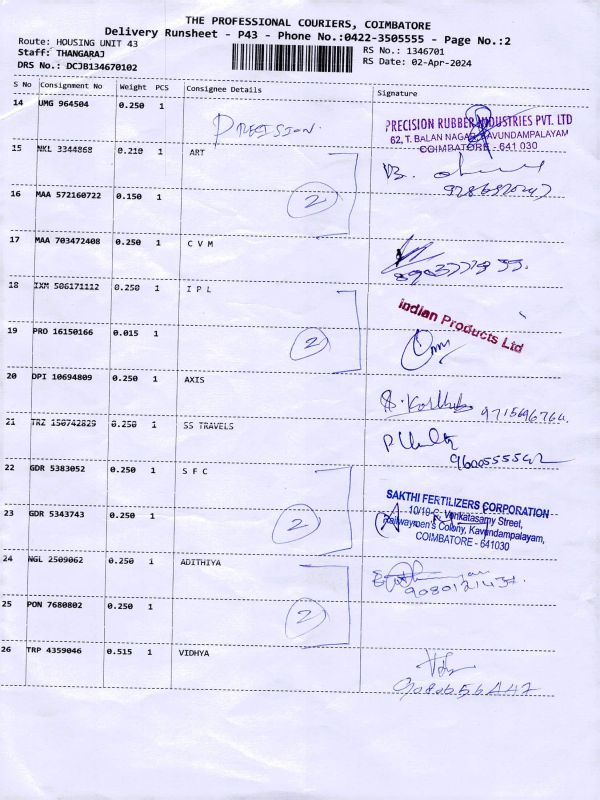 THE PROFESSIONAL COURIERS, COIMBATORE
Delivery Runsheet - P43 - Phone No.:0422-3505555 - Page No.:2
Route: HOUSING UNIT 43
RS No.: 1346701
Staff: THANGARAJ
RS Date: 02-Apr-2024
DRS No.: DCJB134670102
S No Consignment No Weight PCS Consignee Details Signature
14 UMG 964504 0.250 1 PRECISION.
PRECISION RUBBER INDUSTRIES PVT. LTD
62, T. BALAN NAGAR, KAVUNDAMPALAYAM
COIMBATORE - 641 030
15 NKL 3344868 0.210 1 ART
16 MAA 572160722 0.150 1 2
17 MAA 703472408 0.250 1 C V M
18 IXM 506171112 0.250 1 I P L
Indian Products Ltd
19 PRO 16150166 0.015 1 2
20 DPI 10694809 0.250 1 AXIS
21 TRZ 150742829 0.250 1 SS TRAVELS
9600555542
22 GDR 5383052 0.250 1 S F C
SAKTHI FERTILIZERS CORPORATION
10/10-C, Venkatasamy Street,
Railwaymen's Colony, Kavundampalayam,
COIMBATORE - 641030
23 GDR 5343743 0.250 1 2
24 NGL 2509062 0.250 1 ADITHIYA
25 PON 7680802 0.250 1 2
26 TRP 4359046 0.515 1 VIDHYA